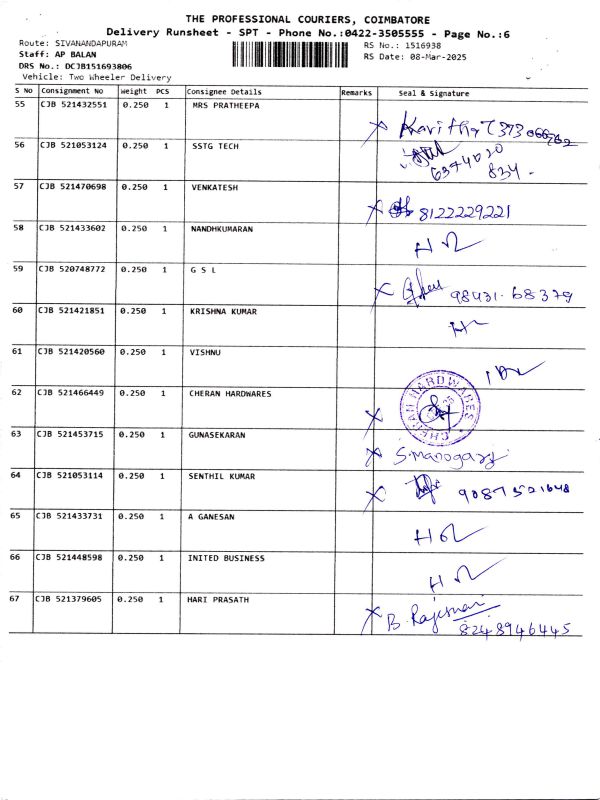 THE PROFESSIONAL COURIERS, COIMBATORE
Delivery Runsheet - SPT - Phone No.:0422-3505555 - Page No.:6
Route: SIVANANDAPURAM
RS No.: 1516938
Staff: AP BALAN
RS Date: 08-Mar-2025
DRS No.: DCJB151693806
Vehicle: Two Wheeler Delivery
S No Consignment No Weight PCS Consignee Details Remarks Seal & Signature
55 CJB 521432551 0.250 1 MRS PRATHEEPA
Kavitha
56 CJB 521053124 0.250 1 SSTG TECH
6374020
834
57 CJB 521470698 0.250 1 VENKATESH
8122229221
58 CJB 521433602 0.250 1 NANDHKUMARAN
59 CJB 520748772 0.250 1 G S L
98431.68379
60 CJB 521421851 0.250 1 KRISHNA KUMAR
61 CJB 521420560 0.250 1 VISHNU
62 CJB 521466449 0.250 1 CHERAN HARDWARES
CHERAN HARDWARES
63 CJB 521453715 0.250 1 GUNASEKARAN
64 CJB 521053114 0.250 1 SENTHIL KUMAR
9087521648
65 CJB 521433731 0.250 1 A GANESAN
66 CJB 521448598 0.250 1 INITED BUSINESS
67 CJB 521379605 0.250 1 HARI PRASATH
8248946445